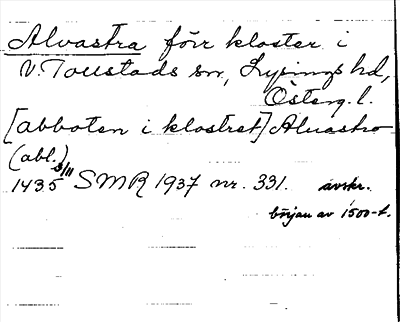 Alvastra förr kloster i
V. Tollstads sn, Lysings hd,
Österg. l.
[abboten i klostret] Alvastro
(abl.)
1435 3/11 SMR 1937 nr. 331. avskr.
början av 1500-t.